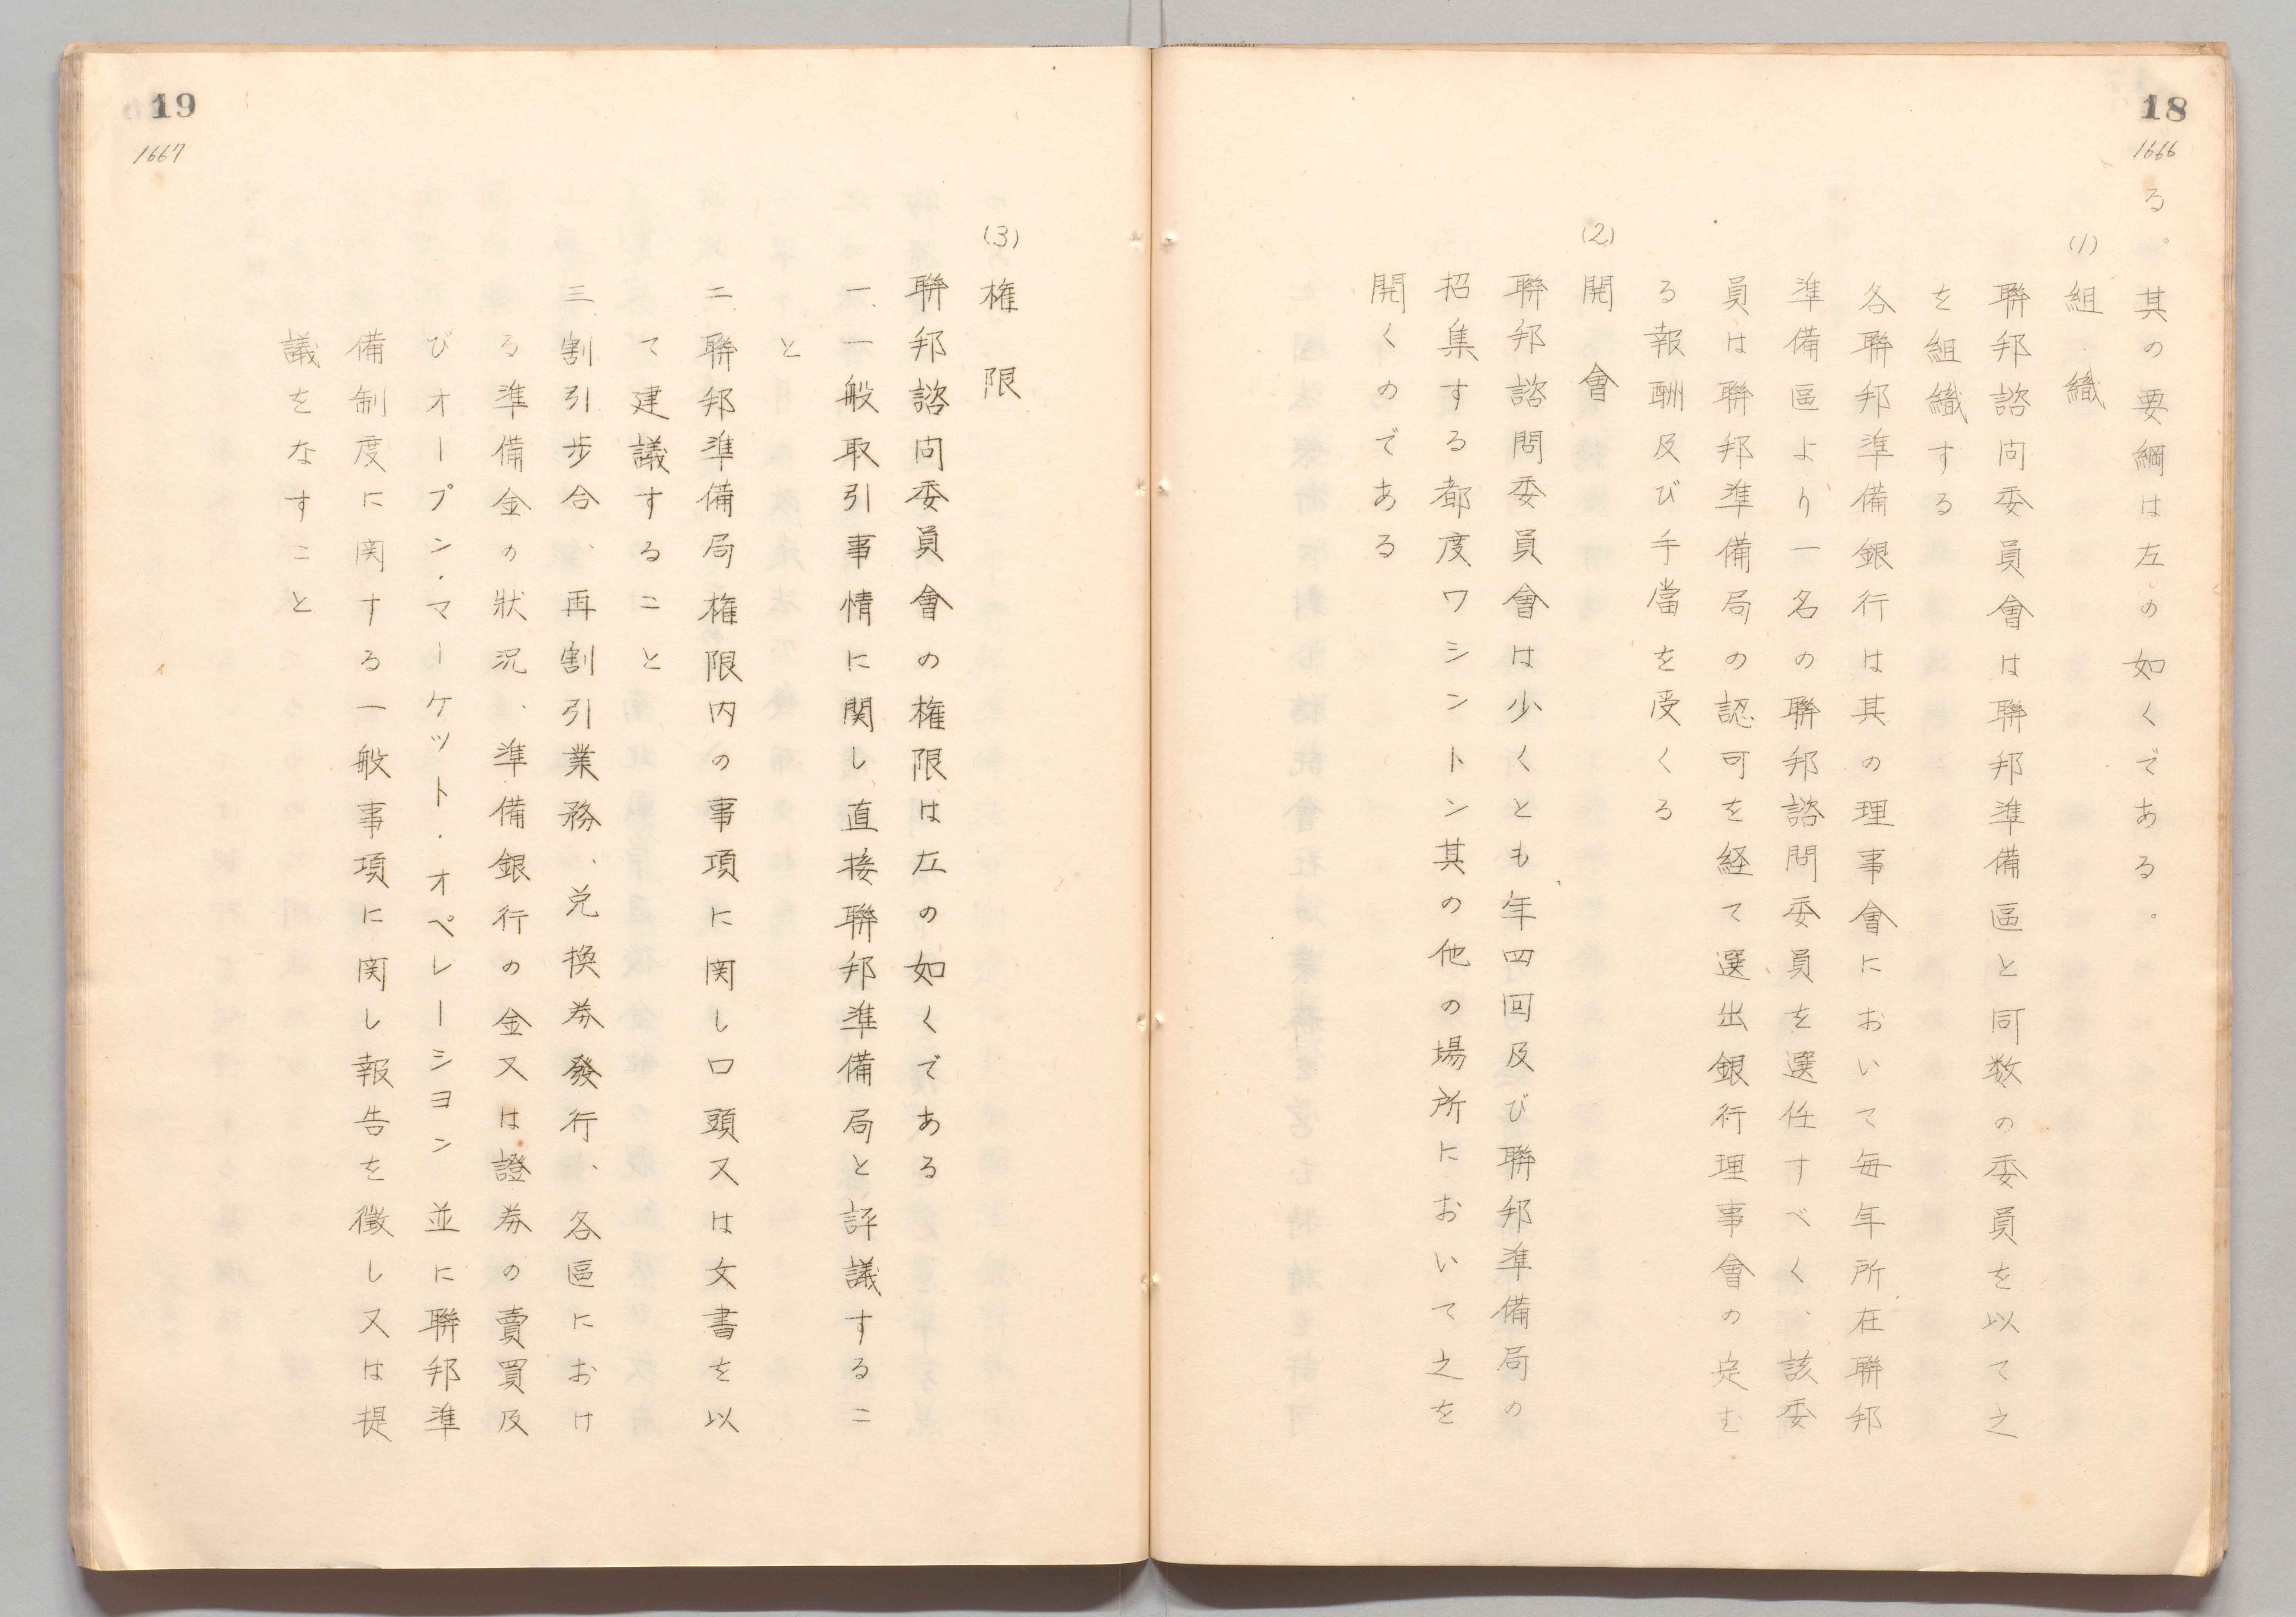 18
1666
る。其の要綱は左の如くである。
(1) 組織
聯邦諮问委員會は聯邦準備區と同数の委員を以て之
を組織する
各聯邦準備銀行は其の理事會において毎年所在聯邦
準備區より一名の聯邦諮問委員を選任すべく、該委
員は聯邦準備局の認可を経て選出銀行理事會の定む
る報酬及び手當を受くる
(2) 開會
聯邦諮問委員會は少くとも年四回及び聯邦準備局の
招集する都度ワシントン其の他の場所において之を
開くのである
19
1667
(3) 権限
聯邦諮问委員會の権限は左の如くである
一、一般取引事情に関し直接聯邦準備局と評議するこ
と
二、聯邦準備局権限内の事項に関し口頭又は文書を以
て建議すること
三、割引歩合、再割引業務、兌換券發行、各區におけ
る準備金の狀况、準備銀行の金又は證券の賣買及
びオープン・マーケット・オペレーション 並に聯邦準
備制度に関する一般事項に関し報告を徴し又は提
議をなすこと